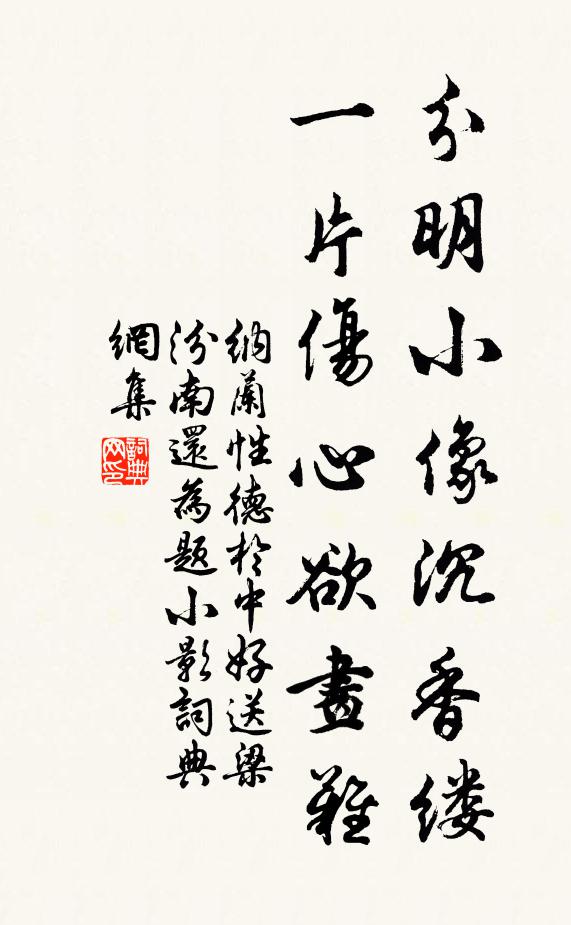 分明小像沉香缕
一片傷心欲畫難
納蘭性德於中好送梁
汾南還為題小影詞典
網集
詞典
网印